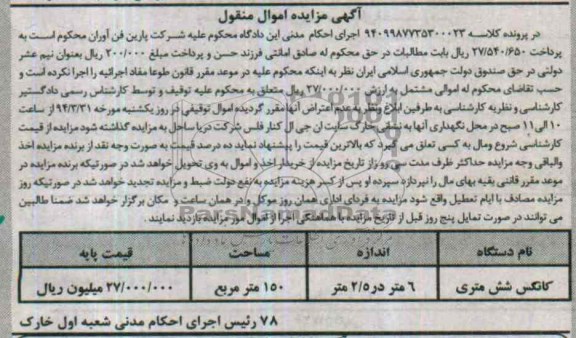 آگهی مزایده اموال منقول
در پرونده کلاسه ۹۴۰۹۹۸۷۷۳۵۳۰۰۰۲۳ اجرای احکام مدنی این دادگاه محکوم علیه شرکت پارین فن آوران محکوم است به
پرداخت ۲۷/۵۴۰/۶۵۰ ریال بابت مطالبات در حق محکوم له صادق امانتی فرزند حسن و پرداخت مبلغ ۲۰۰/۰۰۰ ریال بعنوان نیم عشر
دولتی در حق صندوق دولت جمهوری اسلامی ایران نظر به اینکه محکوم علیه در موعد مقرر قانون طوعا مفاد اجرائیه را اجرا نکرده است و
حسب تقاضای محکوم له اموالی مشتمل به ارزش ۲۷/۰۰۰/۰۰۰ ریال متعلق به محکوم علیه توقیف و توسط کارشناس رسمی دادگستر
کارشناسی و نظریه کارشناسی به طرفین ابلاغ نظر به عدم اعتراض آنها مقرر گردید اموال توقیفی از روز یکشنبه مورخه ۹۴/۳/۳۱ از ساعت
۱۰ الی ۱۱ صبح در محل نگهداری آنها به نشانی خارک سایت ان جی ال کنار فلس شرکت دریا ساحل به مزایده گذاشته شود مزایده از قیمت
کارشناسی شروع ومال به کسی تعلق می گیرد که بالاترین قیمت را پیشنهاد نماید ده درصد قیمت به صورت وجه نقد از برنده مزایده اخذ
والباقی وجه مزایده حداکثر ظرف مدت سی روز از تاریخ مزایده از خریدار اخذ و اموال به وی تحویل خواهد شد در صورتیکه برنده مزایده در
موعد مقرر قانی بقیه بهای مال را نپردازد سپرده او پس از کسر هزینه مزایده به نفع دولت ضبط و مزایده تجدید خواهد شد در صورتیکه روز
مزایده مصادف با ایام تعطیل واقع شود مزایده به فردای اداری همان روز موکول و در همان ساعت و مکان برگزار خواهد شد ضمنا طالبین
می توانند در صورت تمایل پنج روز قبل از تاریخ مزایده با هماهنگی اجرا از اموال مورد مزایده بازدید نمایند.
نام دستگاه اندازه مساحت قیمت پایه
کانکس شش متری ۶ متر در ۲/۵ متر ۱۵۰ متر مربع ۲۷/۰۰۰/۰۰۰ میلیون ریال
۷۸ رئیس اجرای احکام مدنی شعبه اول خارک